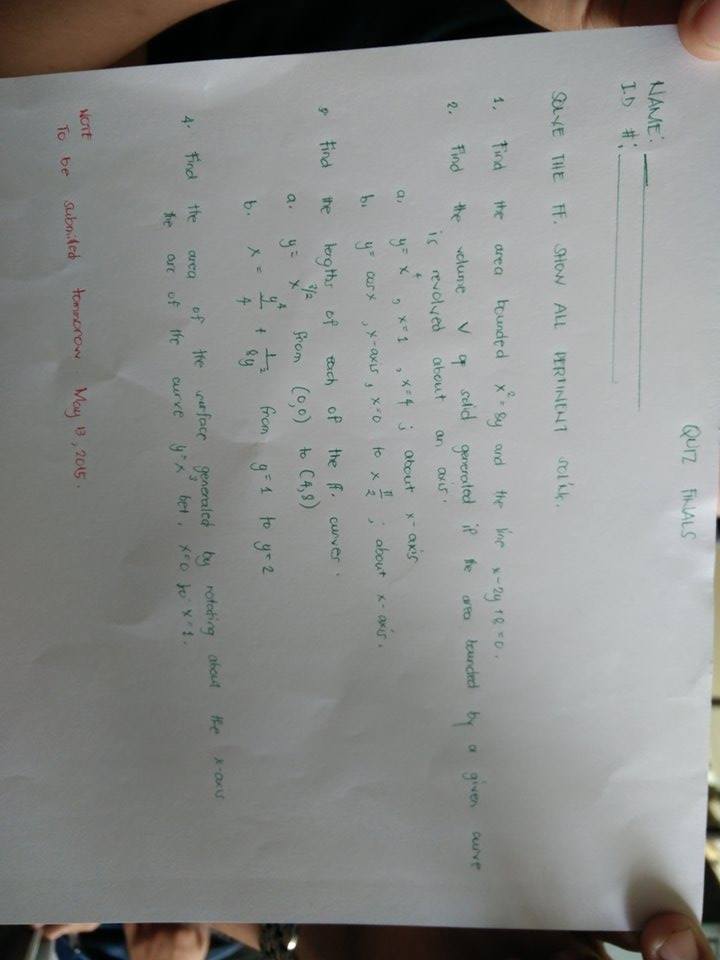 QUIZ FINALS
NAME:
ID #:
SOLVE THE FF. SHOW ALL PERTINENT sol'n.
1. Find the area bounded x² = 8y and the line x - 2y + 8 = 0.
2. Find the volume V of solid generated if the area bounded by a given curve
is revolved about an axis.
a. y = x⁴, x = 1, x = 4; about x-axis
b. y = cos x, x-axis, x = 0 to x π/2; about x-axis.
Find the lengths of each of the ff. curves.
a. y = x^3/2 from (0,0) to (4,8)
b. x = y⁴/4 + 1/8y² from y = 1 to y = 2
4. Find the area of the surface generated by rotating about the x-axis
the arc of the curve y = x³ bet. x = 0 to x = 1.
NOTE
To be submited tommorow May 13, 2015.